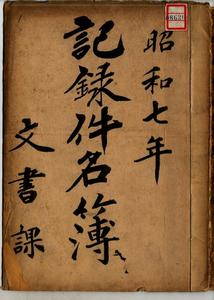 昭和七年
記録件名簿
文書課